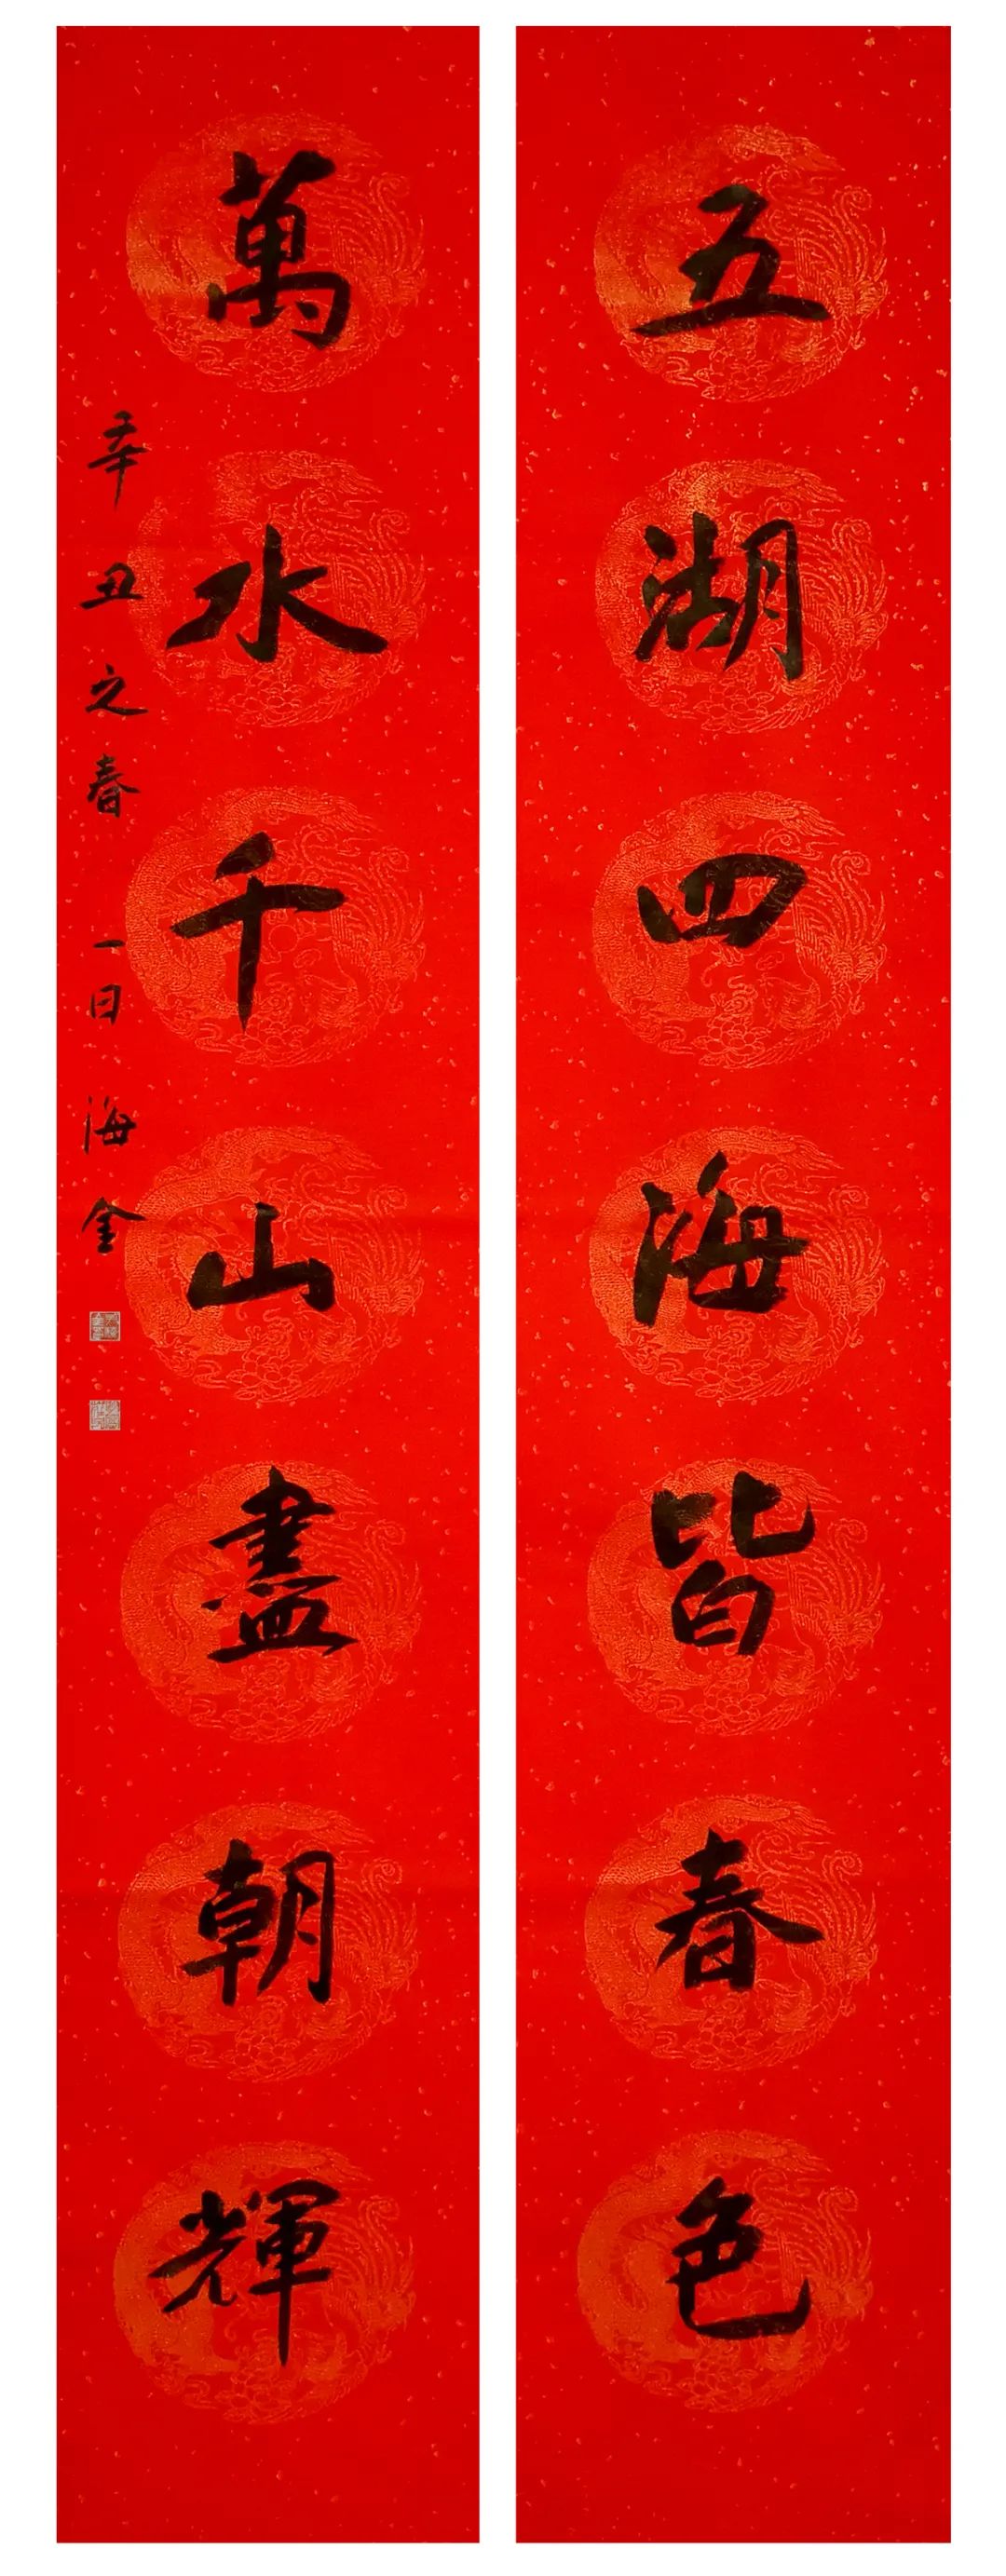 五湖四海皆春色
萬水千山盡朝輝
辛丑之春一日海金